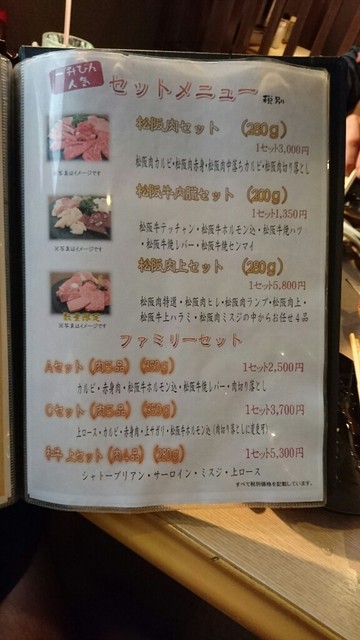 一升びん
人気
セットメニュー 税別
松阪肉セット (280g)
1セット3,000円
松阪肉カルビ・松阪肉赤身・松阪肉中落ちカルビ・松阪肉切り落とし
※写真はイメージです
松阪牛内臓セット (200g)
1セット1,350円
松阪牛テッチャン・松阪牛ホルモン込・松阪牛焼ハツ
・松阪牛焼レバー・松阪牛焼センマイ
※写真はイメージです
松阪肉上セット (280g)
1セット5,800円
松阪肉特選・松阪肉ヒレ・松阪肉ランプ・松阪肉上・
松阪牛上ハラミ・松阪肉ミスジの中からお任せ4品
数量限定
※写真はイメージです
ファミリーセット
Aセット (肉5品)
1セット2,500円
カルビ・赤身肉・松阪牛ホルモン込・松阪牛焼レバー・肉切り落とし
セット (肉5品)
1セット3,700円
上ロース・カルビ・赤身肉・上サガリ・松阪牛ホルモン込(肉切り落としに変更可)
和牛 上セット (肉4品) (280g)
1セット5,300円
シャトーブリアン・サーロイン・ミスジ・上ロース
すべて税別価格を記載しています。